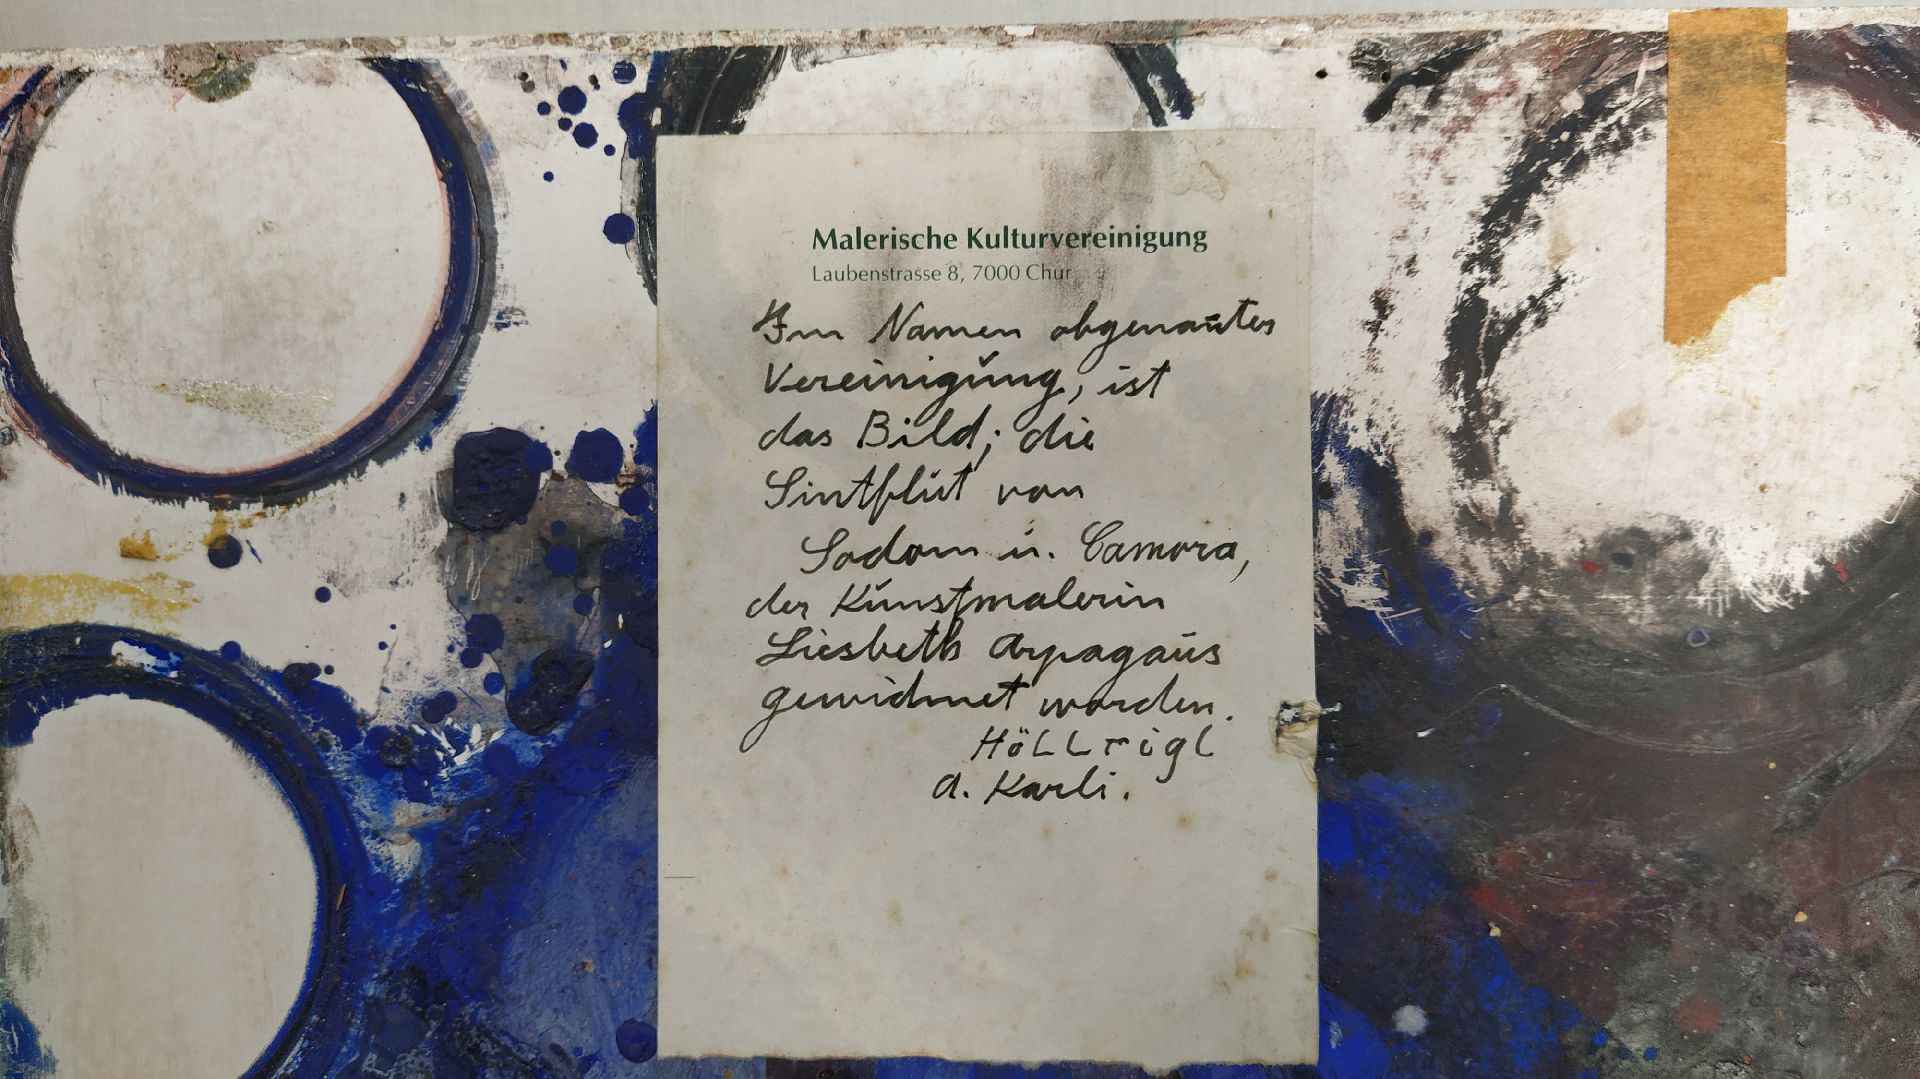 Malerische Kulturvereinigung
Laubenstrasse 8, 7000 Chur
Im Namen obgenan̄ter
Vereinigung, ist
das Bild; die
Sintflut von
Sodom u. Camora,
der Kunstmalerin
Liesbeth Arpagaus
gewidmet worden.
HöLLrigl
A. Karli.